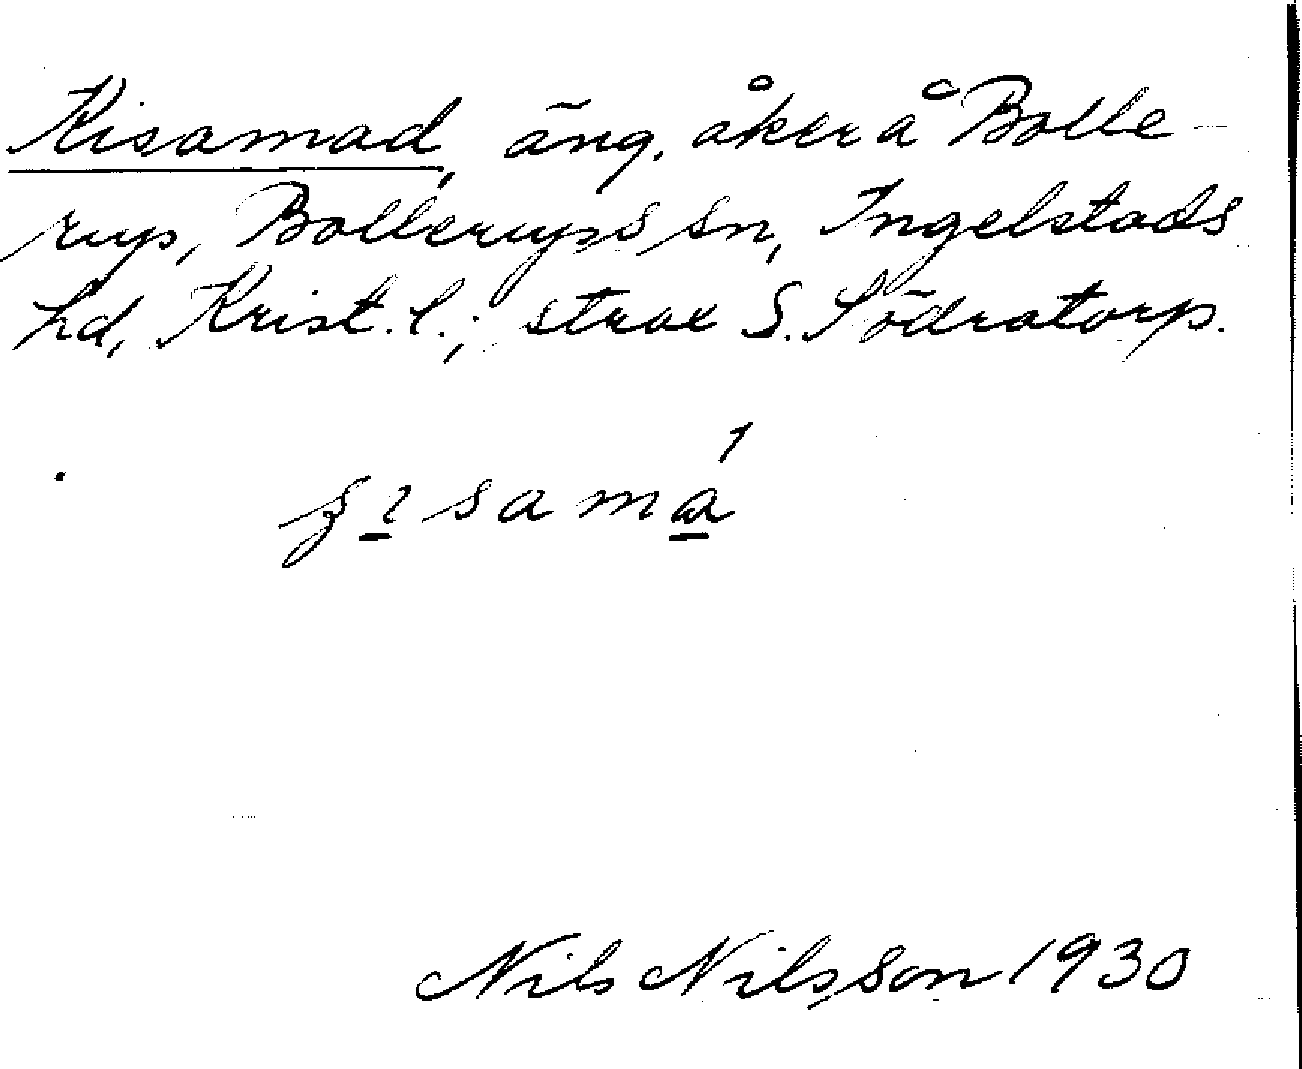 Kisamad, äng, åker å Bolle-
rup, Bollerups sn, Ingelstads
hd, Krist. l.; strax S. Södratorp.
1
samα
Nils Nilsson 1930